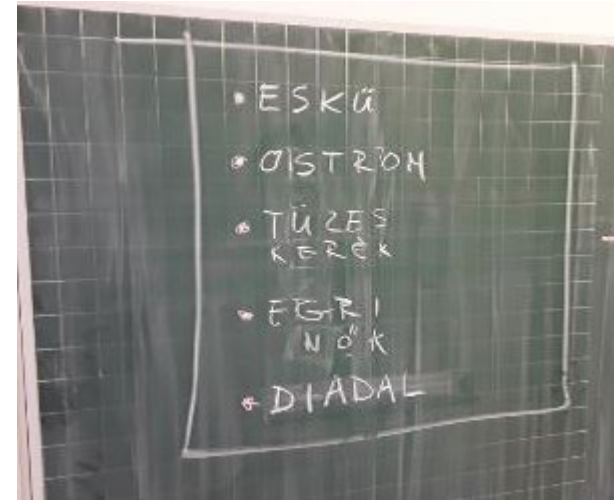 • ESKÜ
• OSTROM
• TÜZES
KERÉK
• EGRI
NŐK
• DIADAL